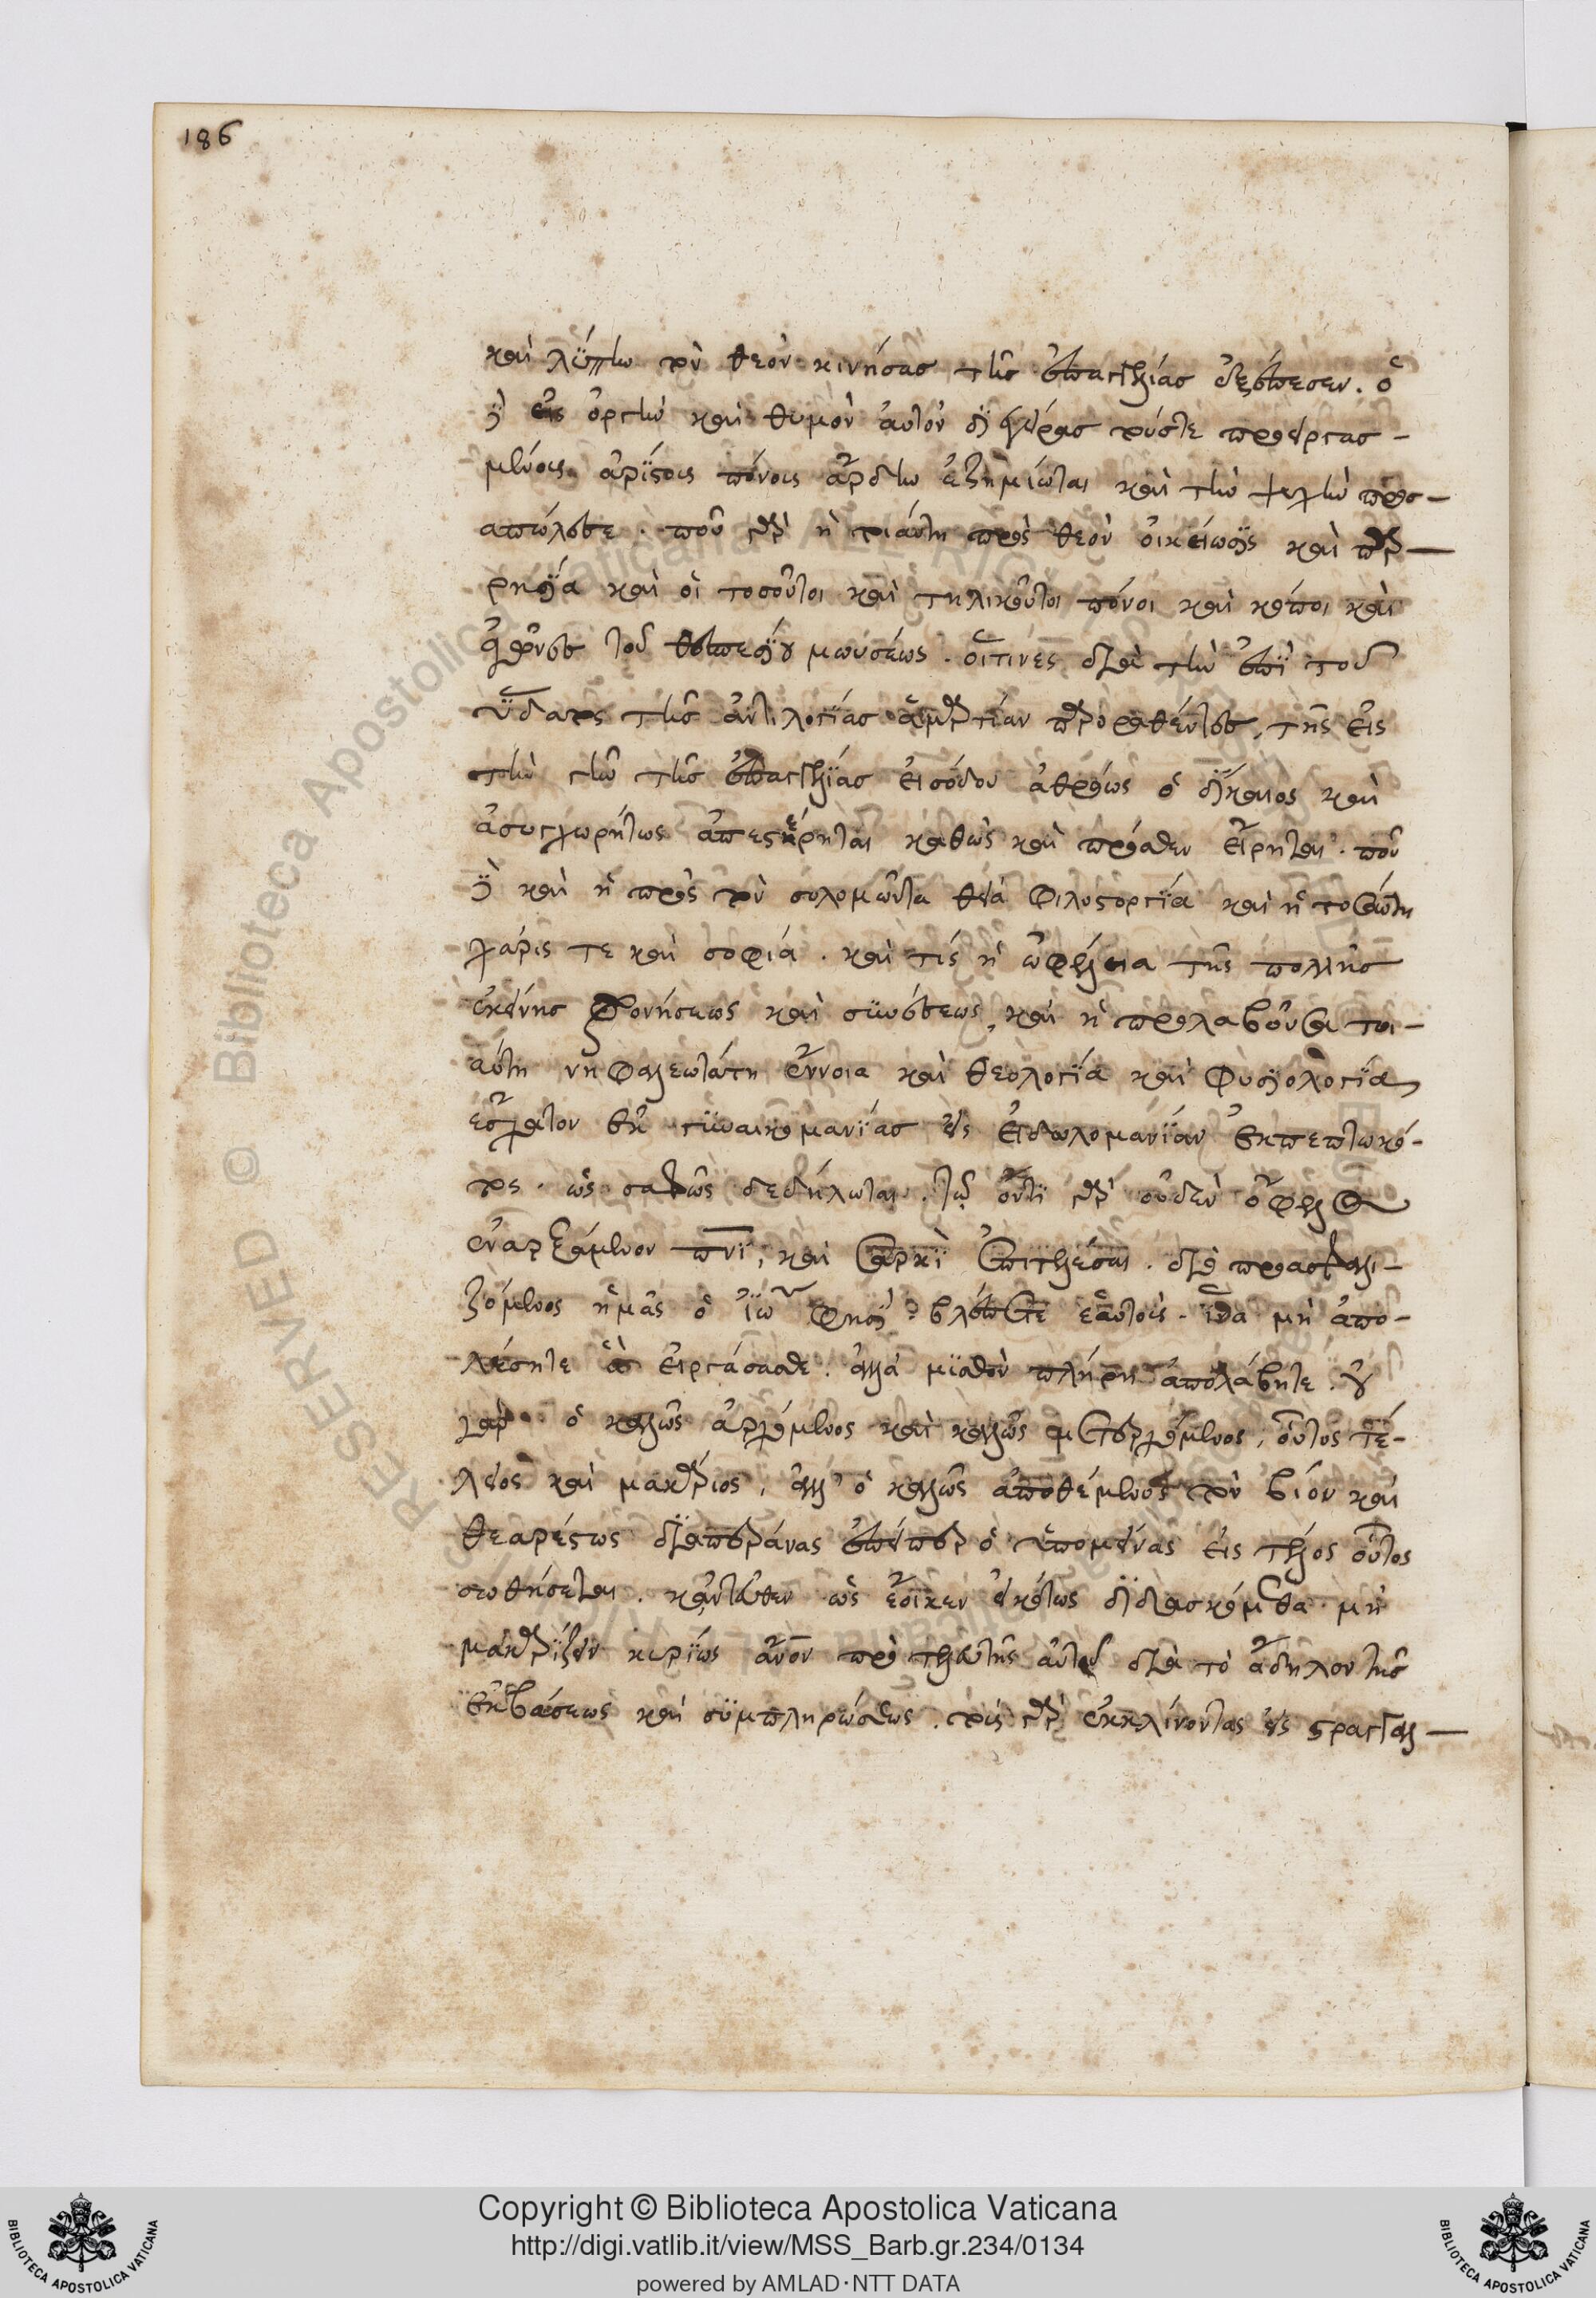 186
καὶ λύπην τὸν θεὸν κινήσας τῆς ἐπαγγελίας ἐξέπεσεν. ὁ
δὲ εἰς ὀργὴν καὶ θυμὸν αὐτὸν διεγείρας τούς τε προειργασ-
μένους ἀρίστους πόνους ἄρδην ἐζημίωται καὶ τὴν ψυχὴν προσ-
απώλεσε. ποῦ γὰρ ἡ τοιαύτη πρὸς θεὸν οἰκείωσις καὶ παρ-
ρησία καὶ οἱ τοσοῦτοι καὶ τηλικοῦτοι πόνοι καὶ κόποι καὶ
τοῦ θεσπεσίου μωυσέως. οἵτινες διὰ τὴν ἐπὶ τοῦ
ὕδατος τῆς ἀντιλογίας ἁμαρτίαν παροραθέντες, τῆς εἰς
τὴν γῆν τῆς ἐπαγγελίας εἰσόδου ἀθρόως ὁ δίκαιος καὶ
ἀσυγχωρήτως ἀπεστέρηται καθὼς καὶ πρόσθεν εἴρηται. ποῦ
δὲ καὶ ἡ πρὸς τὸν σολομῶντα θεία φιλοστοργία καὶ ἡ τοσαύτη
χάρις τε καὶ σοφία. καὶ τίς ἡ ὠφέλεια τῆς πολλῆς
ἐκείνης φρονήσεως καὶ συνέσεως, καὶ ἡ προλαβοῦσα τοι-
αύτη νηφαλεωτάτη ἔννοια καὶ θεολογία καὶ φυσιολογία
ἔσχατον ἐκ γυναικομανίας εἰς εἰδωλομανίαν ἐκπεπτωκό-
τος. ὡς σαφῶς δεδήλωται. τῷ ὄντι γὰρ οὐδὲν ὄφελος
ἐναρξάμενον πνι, καὶ σαρκὶ ἐπιτελέσαι. διὸ προασφαλι-
ζόμενος ἡμᾶς ὁ ἰω φησί. βλέπετε ἑαυτοῖς. ἵνα μὴ ἀπο-
λέσητε ἃ εἰργάσασθε. ἀλλὰ μισθὸν πλήρη ἀπολάβητε. οὐ
γὰρ ὁ καλῶς ἀρχόμενος καὶ καλῶς μετερχόμενος, οὗτος τέ-
λειος καὶ μακάριος, ἀλλ' ὁ καλῶς ἀποθέμενος τὸν βίον καὶ
θεαρέστως διαπεράνας ἐπείπερ ὁ ὑπομείνας εἰς τέλος οὗτος
σωθήσεται. κἀντεῦθεν ὡς ἔοικεν εἰκότως διδασκόμεθα μὴ
μακαρίζειν κυρίως ἄνον πρὸ τελευτῆς αὐτοῦ διὰ τὸ ἄδηλον τῆς
ἐκβάσεως καὶ συμπληρώσεως. τοὺς γὰρ ἐκκλίνοντας εἰς στραγγαλ-